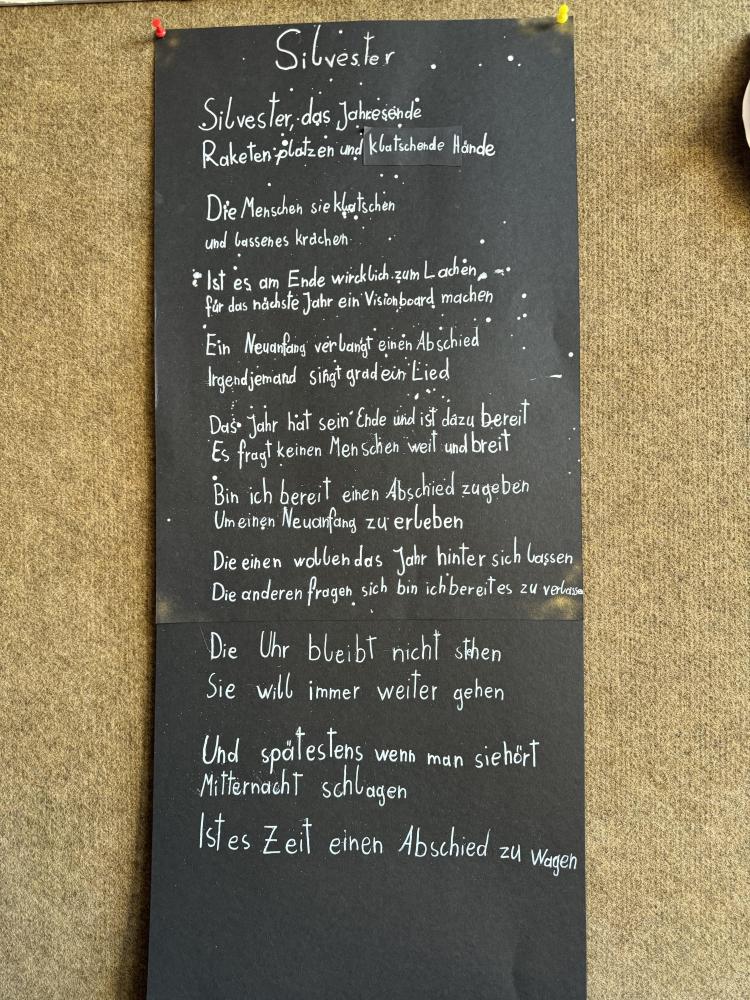 Silvester
Silvester, das Jahresende
Raketen platzen und klatschende Hände
Die Menschen sie klatschen
und lassen es krachen
Ist es am Ende wircklich zum Lachen,
für das nächste Jahr ein Visionboard machen
Ein Neuanfang verlangt einen Abschied
Irgendjemand singt grad ein Lied
Das Jahr hat sein Ende und ist dazu bereit
Es fragt keinen Menschen weit und breit
Bin ich bereit einen Abschied zu geben
Um einen Neuanfang zu erleben
Die einen wollen das Jahr hinter sich lassen
Die anderen fragen sich bin ich bereit es zu verlassen
Die Uhr bleibt nicht stehen
Sie will immer weiter gehen
Und spätestens wenn man sie hört
Mitternacht schlagen
Ist es Zeit einen Abschied zu wagen